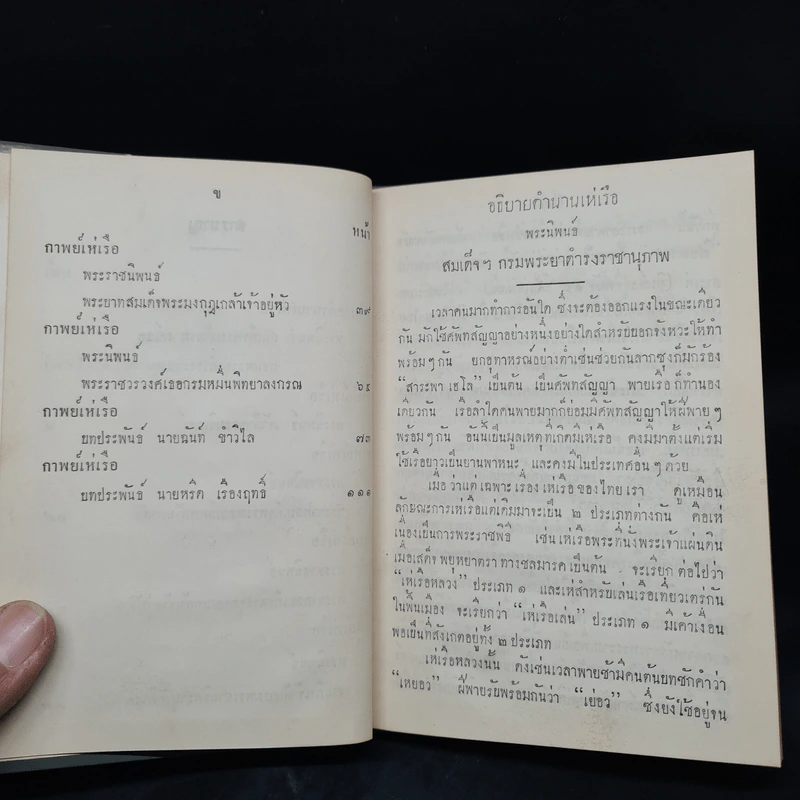 ข
หน้า
กาพย์เห่เรือ
พระราชนิพนธ์
พระบาทสมเด็จพระมงกุฎเกล้าเจ้าอยู่หัว ๓๙
กาพย์เห่เรือ
พระนิพนธ์
พระราชวรวงศ์เธอกรมหมื่นพิทยาลงกรณ ๖๕
กาพย์เห่เรือ
บทประพันธ์ นายฉันท์ ขำวิไล ๗๓
กาพย์เห่เรือ
บทประพันธ์ นายหริต เรืองฤทธิ์ ๑๑๑
อธิบายตำนานเห่เรือ
พระนิพนธ์
สมเด็จฯ กรมพระยาดำรงราชานุภาพ
เวลาคนมากทำการอันใด ซึ่งจะต้องออกแรงในขณะเดียว
กัน มักใช้ศัพท์สัญญาอย่างหนึ่งอย่างใดสำหรับบอกจังหวะให้ทำ
พร้อมๆ กัน ยกอุทาหรณ์อย่างต่ำเช่นช่วยกันลากซุงก็มักร้อง
“สาระพา เฮโล” เป็นต้น เป็นศัพท์สัญญา พายเรือก็ทำนอง
เดียวกัน เรือลำใดคนพายมากก็ย่อมมีศัพท์สัญญาให้ฝีพายๆ
พร้อมๆ กัน อันนี้เป็นมูลเหตุที่เกิดมีเห่เรือ คงมีมาตั้งแต่เริ่ม
ใช้เรือยาวเป็นยานพาหนะ และคงมีในประเทศอื่นๆ ด้วย
เมื่อว่าแต่เฉพาะเรื่องเห่เรือของไทยเรา ดูเหมือน
ลักษณะการเห่เรือแต่เดิมมาจะเป็น ๒ ประเภทต่างกัน คือเห่
เนื่องเป็นการพระราชพิธี เช่นเห่เรือพระที่นั่งพระเจ้าแผ่นดิน
เมื่อเสด็จพยุหยาตราทางชลมารคเป็นต้น จะเรียกต่อไปว่า
“เห่เรือหลวง” ประเภท ๑ และเห่สำหรับเล่นเรือเที่ยวเตร่กัน
ในพื้นเมือง จะเรียกว่า “เห่เรือเล่น” ประเภท ๑ มีเค้าเงื่อน
พอเป็นที่สังเกตอยู่ทั้ง ๒ ประเภท
เห่เรือหลวงนั้น ดังเช่นเวลาพายช้ามีคนต้นบทชักคำว่า
“เหยอว” ฝีพายรับพร้อมกันว่า “เย่อว” ซึ่งยังใช้อยู่จน